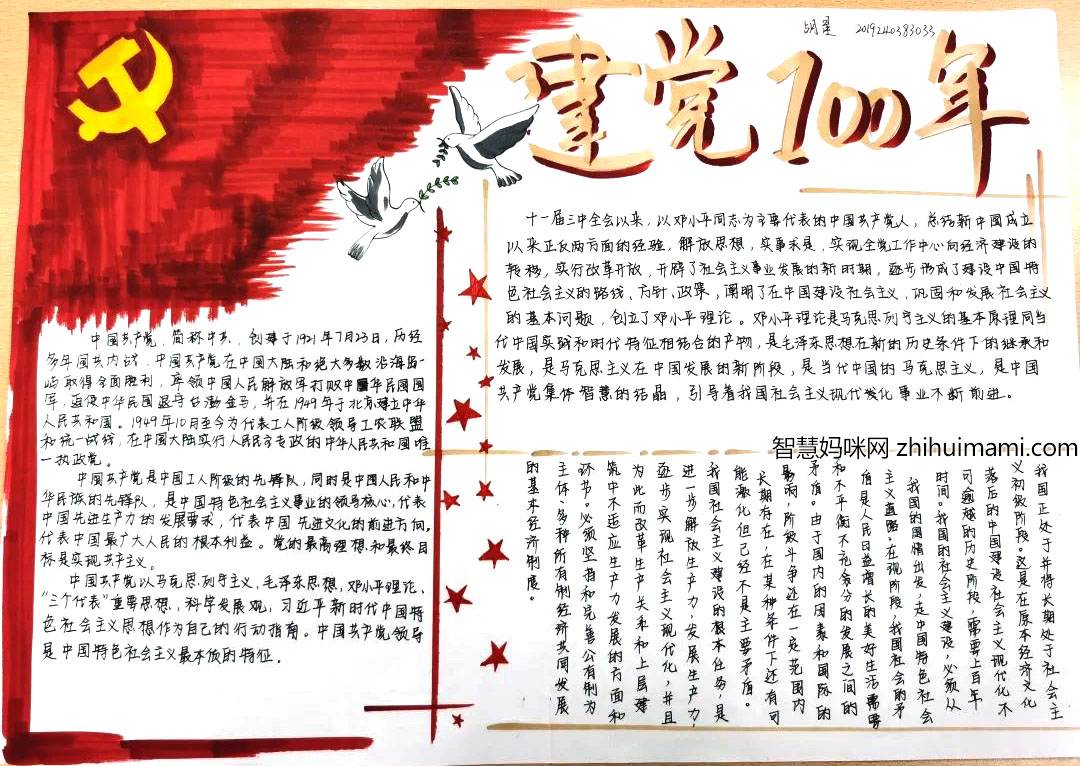 胡星 2019240383033
建党100年
中国共产党，简称中共，创建于1921年7月23日，历经
多年国共内战，中国共产党在中国大陆和绝大多数沿海岛
屿取得全面胜利，率领中国人民解放军打败中华民国国
军，迫使中华民国退守台澎金马，并在1949年于北京建立中华
人民共和国。1949年10月至今为代表工人阶级领导工农联盟
和统一战线，在中国大陆实行人民民主专政的中华人民共和国唯
一执政党。
中国共产党是中国工人阶级的先锋队，同时是中国人民和中
华民族的先锋队，是中国特色社会主义事业的领导核心，代表
中国先进生产力的发展要求，代表中国先进文化的前进方向，
代表中国最广大人民的根本利益。党的最高理想和最终目
标是实现共产主义。
中国共产党以马克思列宁主义、毛泽东思想，邓小平理论、
“三个代表”重要思想，科学发展观，习近平新时代中国特
色社会主义思想作为自己的行动指南。中国共产党领导
是中国特色社会主义最本质的特征。
十一届三中全会以来，以邓小平同志为主要代表的中国共产党人，总结新中国成立
以来正反两方面的经验，解放思想，实事求是，实现全党工作中心向经济建设的
转移，实行改革开放，开辟了社会主义事业发展的新时期，逐步形成了建设中国特
色社会主义的路线、方针、政策，阐明了在中国建设社会主义、巩固和发展社会主义
的基本问题，创立了邓小平理论。邓小平理论是马克思列宁主义的基本原理同当
代中国实践和时代特征相结合的产物，是毛泽东思想在新的历史条件下的继承和
发展，是马克思主义在中国发展的新阶段，是当代中国的马克思主义，是中国
共产党集体智慧的结晶，引导着我国社会主义现代化事业不断前进。
智慧妈咪网 zhihuimami.com
我国正处于并将长期处于社会主
义初级阶段。这是在原本经济文化
落后的中国建设社会主义现代化不
可逾越的历史阶段，需要上百年
时间。我国的社会主义建设，必须从
我国的国情出发，走中国特色社会
主义道路。在现阶段，我国社会的矛
盾是人民日益增长的美好生活需要
和不平衡不充分的发展之间的
矛盾。由于国内的因素和国际的
影响，阶级斗争还在一定范围内
长期存在，在某种条件下还有可
能激化，但已经不是主要矛盾。
我国社会主义建设的根本任务，是
进一步解放生产力，发展生产力，
逐步实现社会主义现代化，并且
为此而改革生产关系和上层建
筑中不适应生产力发展的方面和
环节。必须坚持和完善公有制为
主体、多种所有制经济共同发展
的基本经济制度。